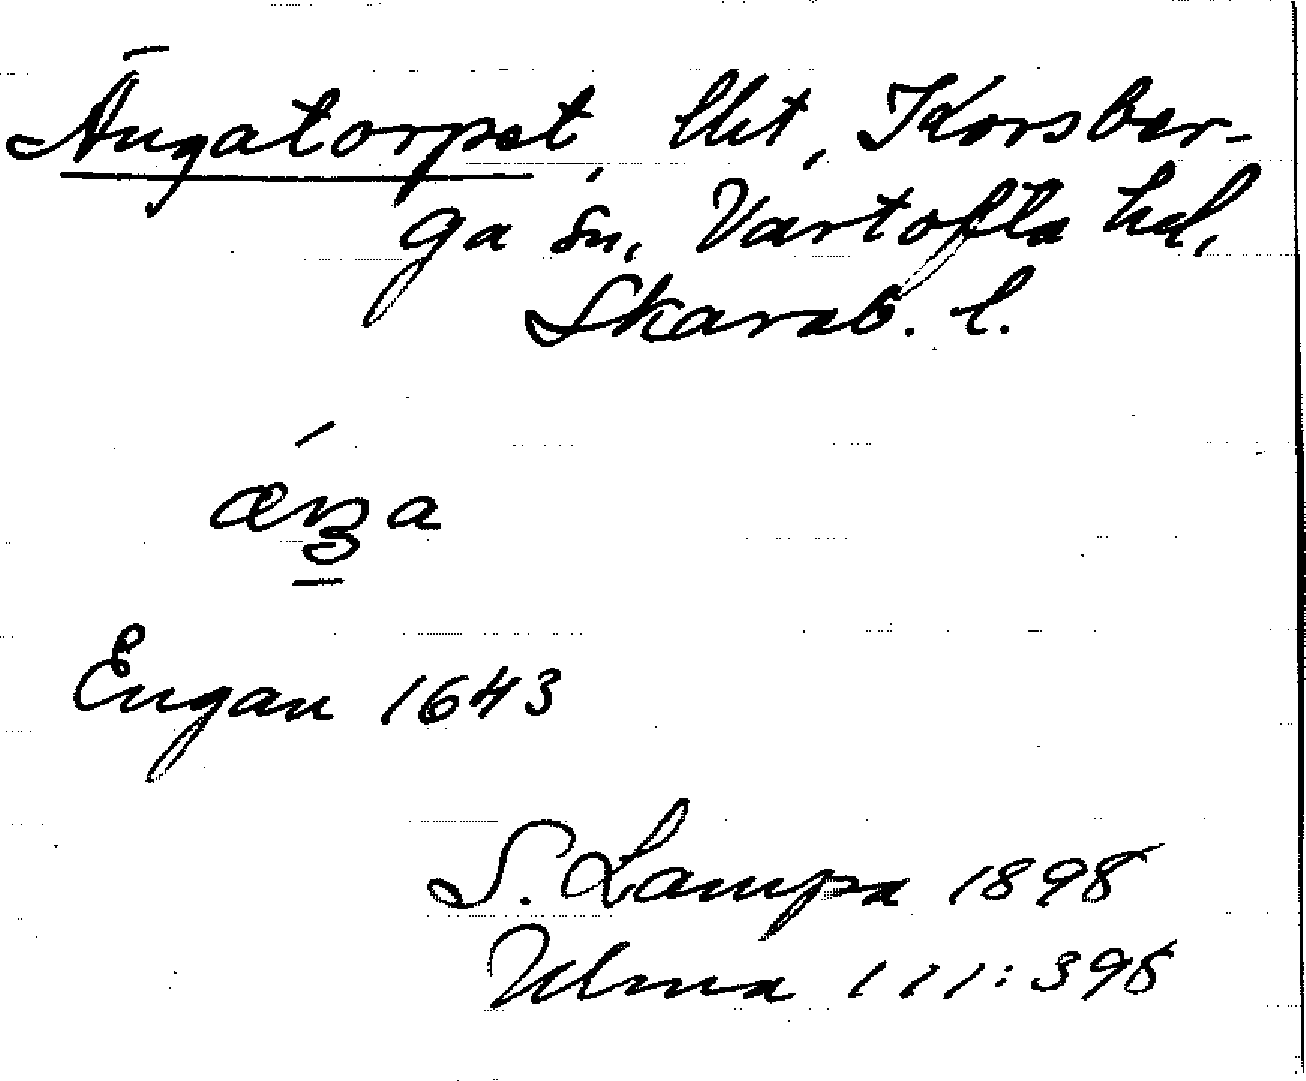 Ängatorpet, lht, Korsber-
ga sn, Vartofta hd,
Skarab. l.
Engan 1643
S. Lampa 1898
Ulma 111:398